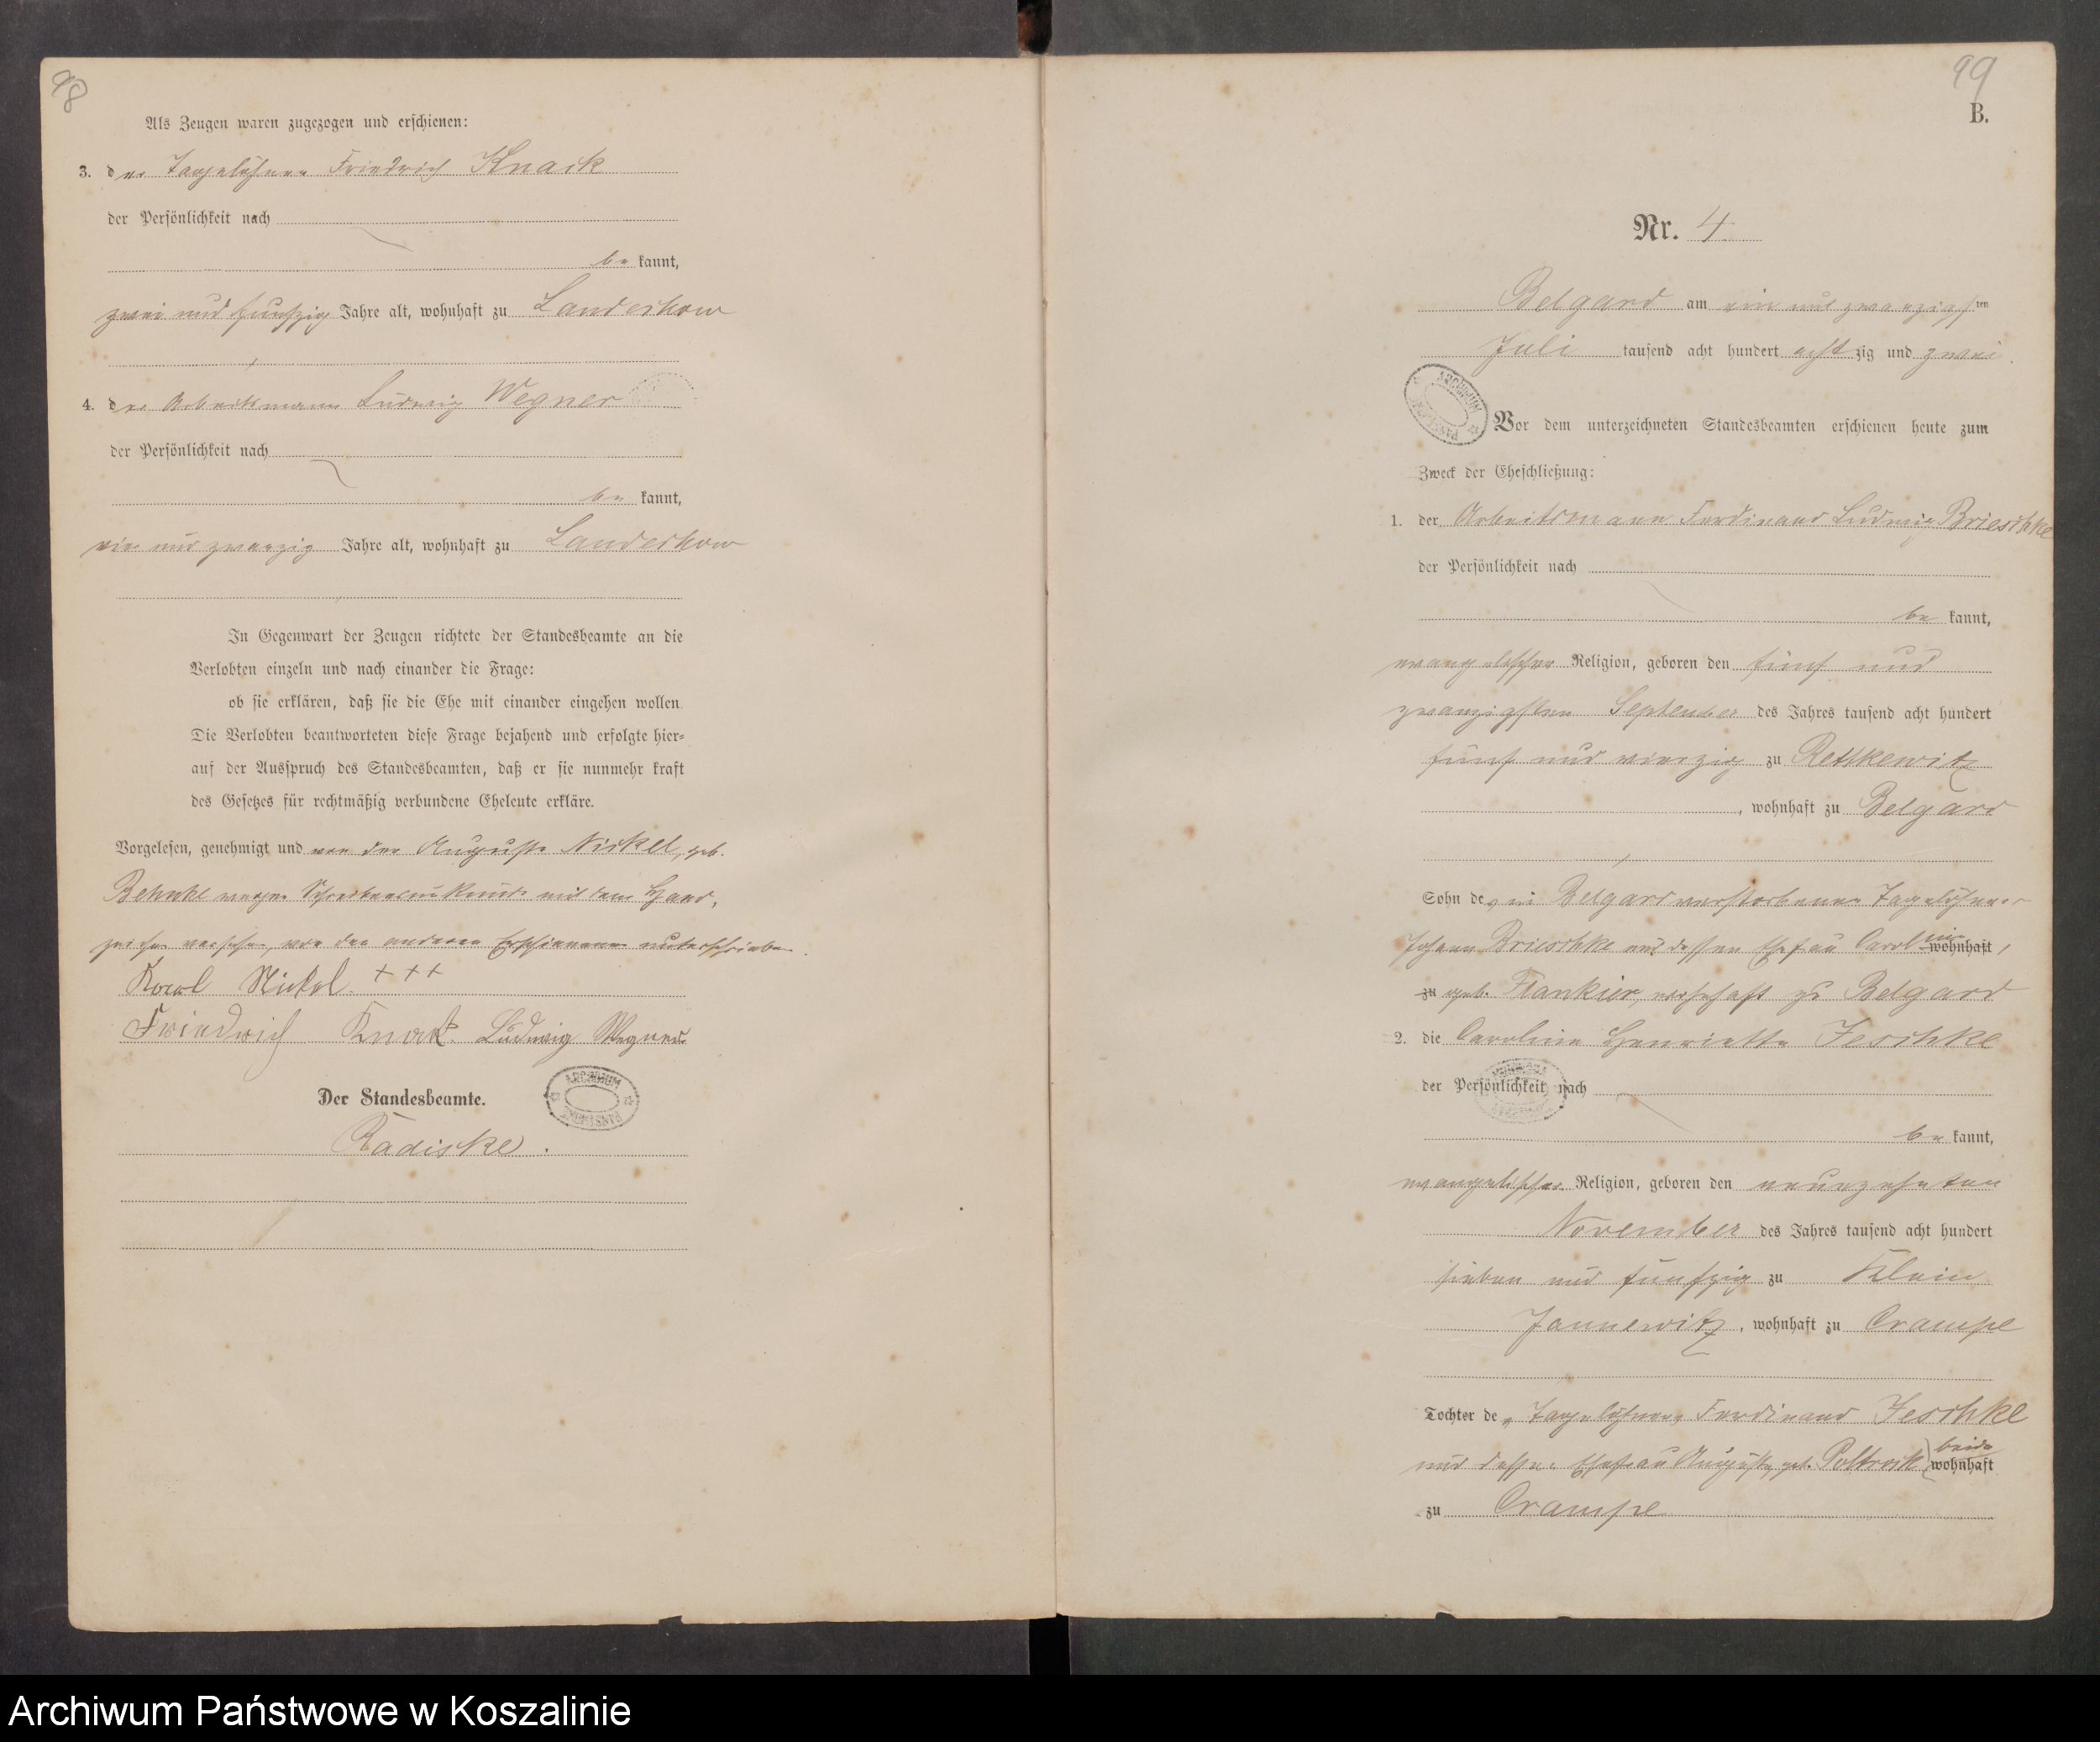 98
Als Zeugen waren zugezogen und erschienen:
3. der Tagelöhner Friedrich Knack
der Persönlichkeit nach
be kannt,
zwei und funfzig Jahre alt, wohnhaft zu Landeskow
4. der Arbeitsmann Ludwig Wegner
der Persönlichkeit nach
be kannt,
ein und zwanzig Jahre alt, wohnhaft zu Landeskow
In Gegenwart der Zeugen richtete der Standesbeamte an die
Verlobten einzeln und nach einander die Frage:
ob sie erklären, daß sie die Ehe mit einander eingehen wollen.
Die Verlobten beantworteten diese Frage bejahend und erfolgte hier=
auf der Ausspruch des Standesbeamten, daß er sie nunmehr kraft
des Gesetzes für rechtmäßig verbundene Eheleute erkläre.
Vorgelesen, genehmigt und von der Auguste Nickel, geb.
wegen Schreibensunkunde mit dem Hand,
zeichen versehen, von den anderen Erschienenen unterschrieben.
Karl Nickel. +++
Friedrich Knack. Ludwig Wegner
Der Standesbeamte.
Radiske.
ARCHIWUM
99
B.
Nr. 4.
Belgard am ein und zwanzigsten
Juli tausend acht hundert achtzig und zwei.
ARCHIWUM
Vor dem unterzeichneten Standesbeamten erschienen heute zum
Zweck der Eheschließung:
1. der Arbeitsmann Ferdinand Ludwig Brieschke
der Persönlichkeit nach
be kannt,
evangelischer Religion, geboren den fünf und
zwanzigsten September des Jahres tausend acht hundert
fünf und vierzig zu Rettkewitz
, wohnhaft zu Belgard
Sohn des in Belgard verstorbenen Tagelöhners
Johann Brieschke und dessen Ehefrau Caroline wohnhaft,
zu geb. wohnhaft zu Belgard
2. die Caroline Henriette Jeschke
der Persönlichkeit nach
be kannt,
evangelischer Religion, geboren den neunzehnten
November des Jahres tausend acht hundert
sieben und funfzig zu Klein
Jannewitz, wohnhaft zu Crampe
Tochter des Tagelöhners Ferdinand Jeschke
und dessen Ehefrau Auguste, geb. beide wohnhaft
zu Crampe
Archiwum Państwowe w Koszalinie